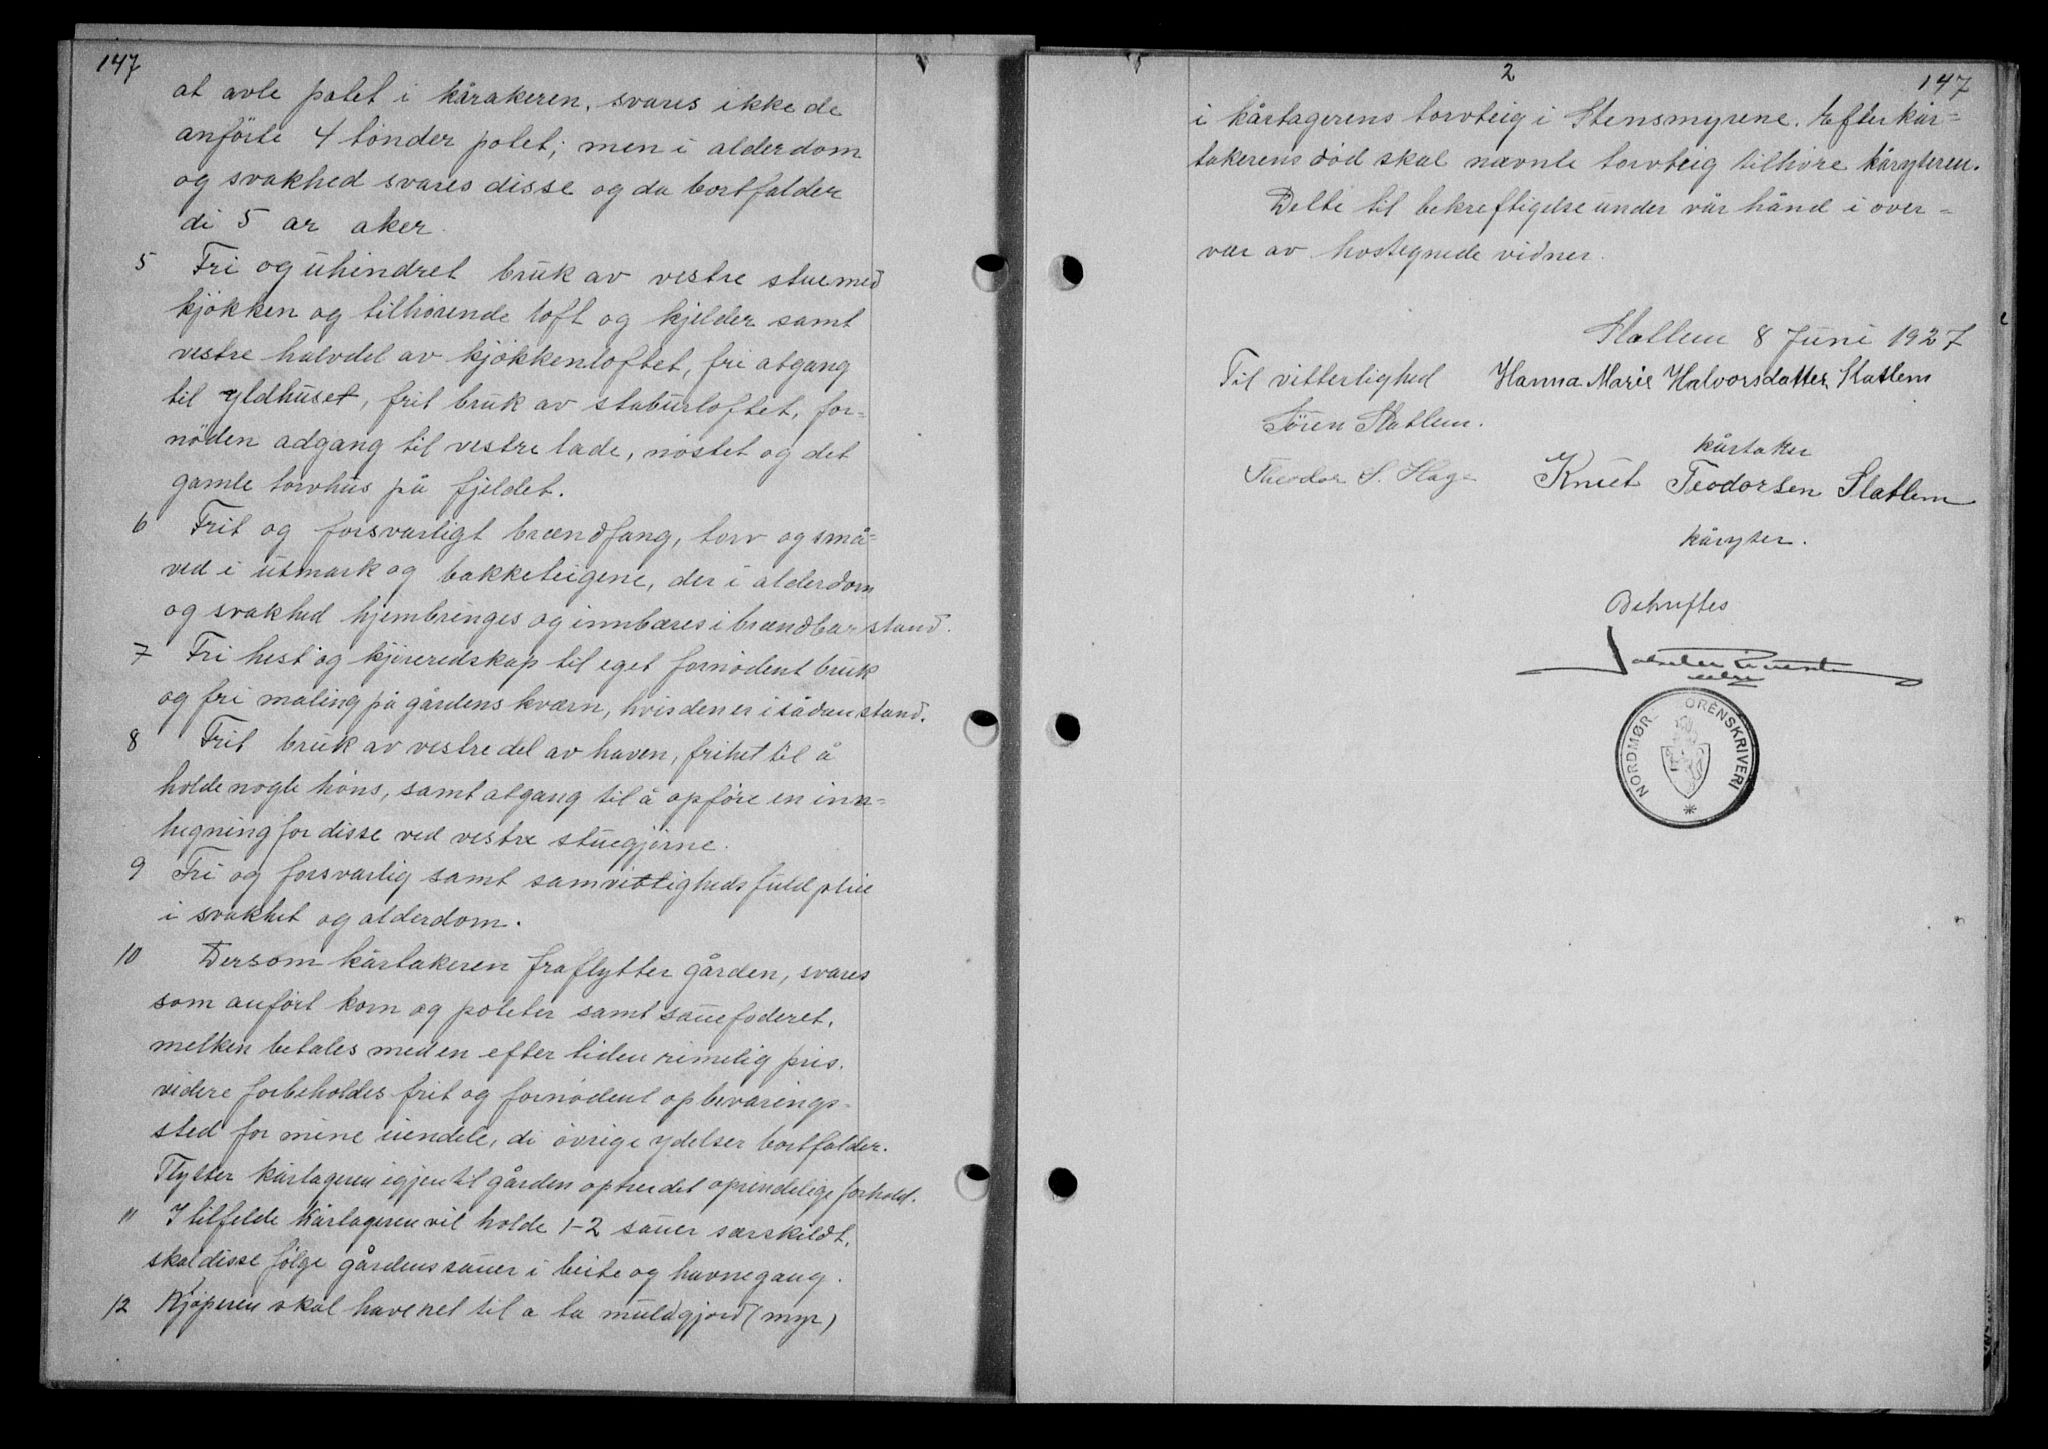 147
at avle potet i kårakeren, svares ikke de
anförte 4 tönder potet; men i alderdom
og svakhed svares disse og da bortfalder
di 5 ar aker.
5 Fri og uhindret bruk av vestre stue med
kjökken og tilhörende loft og kjelder samt
vestre halvdel av kjökkenloftet, fri atgang
til yldhuset, frit bruk av staburloftet, for-
nöden adgang til vestre lade, nöstet og det
gamle torvhus på fjeldet.
6 Frit og forsvarligt brændfang, torv og små-
ved i utmark og bakketeigene, der i alderdom
og svakhed hjembringes og innbæres i brændbar stand.
7 Fri hest og kjöreredskap til eget fornödent bruk
og fri maling på gårdens kværn, hvis den er i sådan stand.
8 Frit bruk av vestre del av haven, frihet til å
holde nogle höns, samt atgang til å opföre en inn-
hegning for disse ved vestre stuegjörne.
9 Fri og forsvarlig samt samvittighedsfuld pleie
i svakhet og alderdom.
10 Dersom kårtakeren fraflytter gården, svares
som anfört korn og poteter samt sauefoderet,
melken betales med en efter tiden rimelig pris.
videre forbeholdes frit og fornödent opbevarings-
sted for mine eiendele, di övrige ydelser bortfalder.
Flytter kårtageren igjen til gården optrer det oprindelige forhold.
11 I tilfelde kårtageren vil holde 1-2 sauer særskildt,
skal disse fölge gårdens sauer i beite og havnegang.
12 Kjöperen skal have ret til a ta muldgjord (myr)
2
147
i kårtagerens torvteig i Stensmyrene. Efter kår-
takerens död skal nævnte torvteig tilhöre kåryteren.
Dette til bekreftigelse under vår hånd i over-
vær av hostegnede vidner.
Slatlem 8 Juni 1927
Til vitterlighed Hanna Marie Halvorsdatter Slatlem
Sören Slatlem.
kårtaker
Theodor S. Hag Knut Teodorsen Slatlem
kåryter.
Bekreftes
NORDMØR ORENSKRIVERI